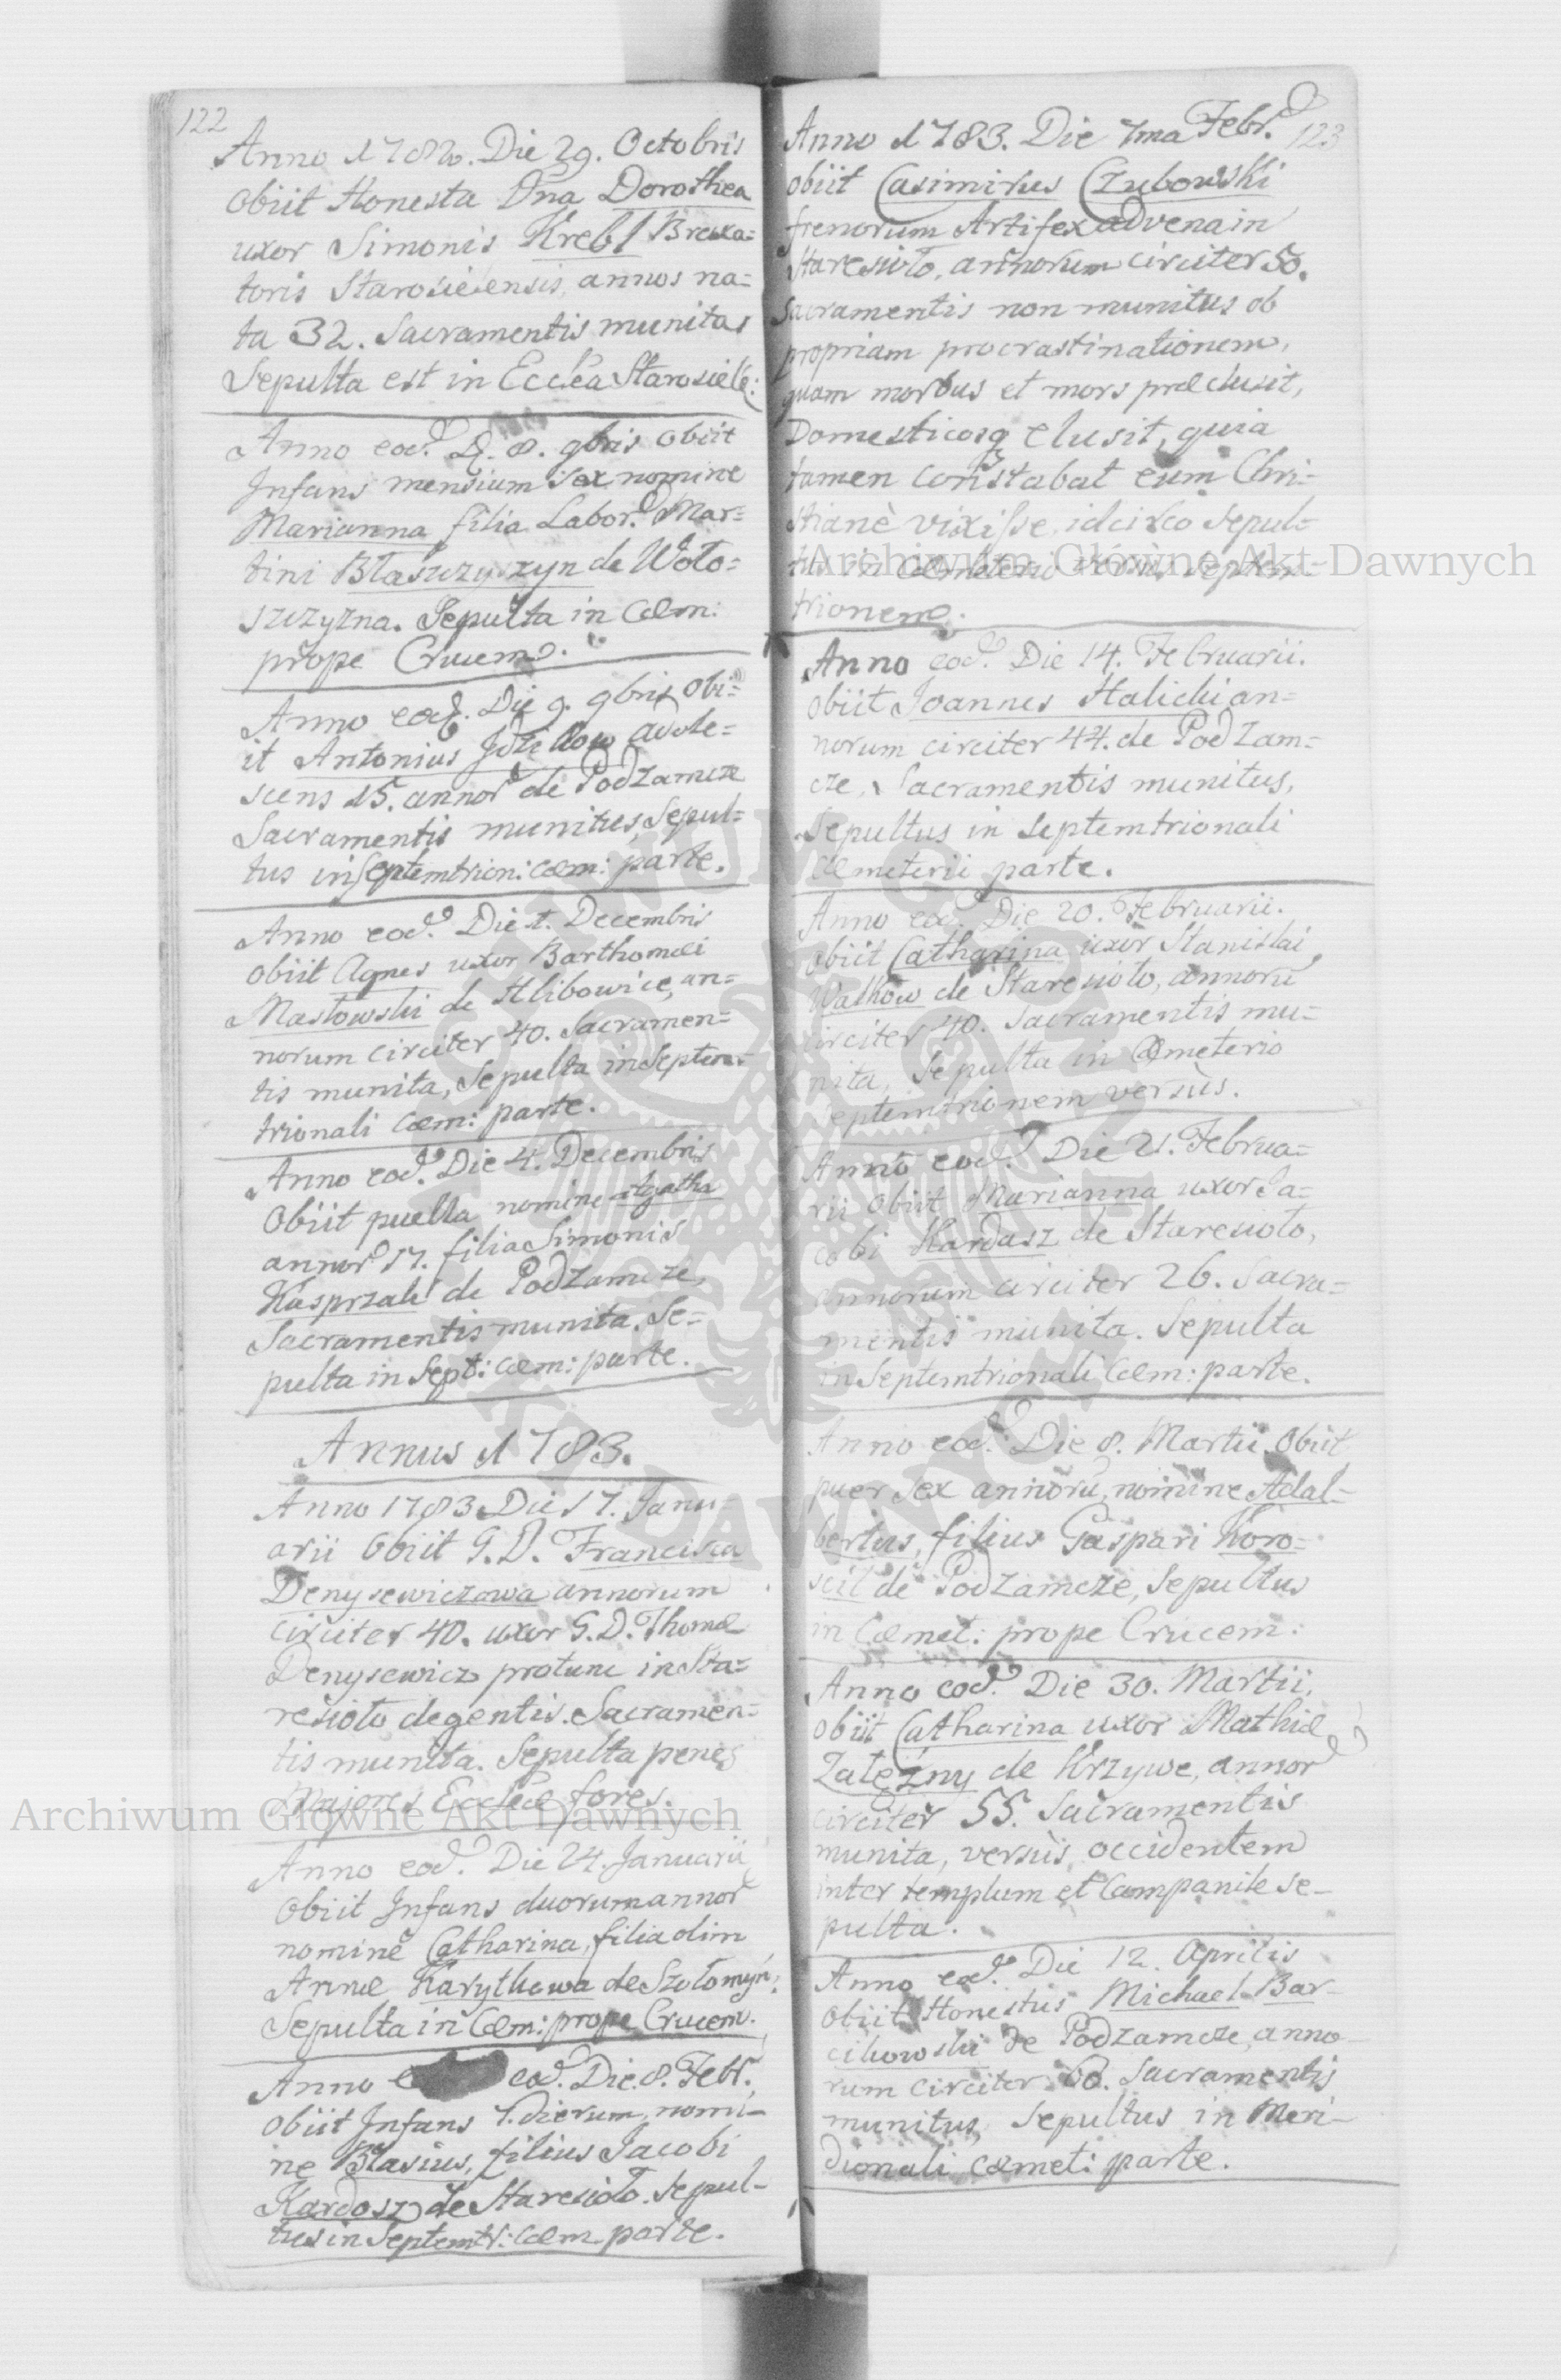 122
Anno 1782. Die 29. Octobris
Obiit Honesta Dna Dorothea
uxor Simonis Krebl Braxa=
toris Starosielensis, annos na=
ta 32. Sacramentis munita,
Sepulta est in Eccl̃ea Starosiele:
Anno eod. D. 8. 9bris Obiit
Infans mensium Sex nomine
Marianna filia Labor. Mar=
tini Błaszczyszyn de Woło=
szczyzna. Sepulta in Cœm:
prope Crucem.
Anno eod. Die 9. 9bris Obi=
it Antonius adole=
scens 15. annor de Podzamcze
Sacramentis munitus, Sepul=
tus in Septemtrion: cœm: parte.
Anno eod. Die 1. Decembris
Obiit Agnes uxor Bartholomæi
Masłowski de Hlibowice, an=
norum circiter 40. Sacramen=
tis munita, Sepulta in Septem=
trionali Cœm: parte.
Anno eod. Die 4. Decembris
Obiit puella nomine Agatha
annor 17. filia Simonis
Kasprzak de Podzamcze,
Sacramentis munita, Se=
pulta in Sept: Cœm: parte.
Annus 1783.
Anno 1783 Die 17. Janu=
arii Obiit G. D. Francisca
Denysewiczowa annorum
circiter 40. uxor G. D. Thomæ
Denysewicz protunc in Sta=
resioło degentis. Sacramen=
tis munita. Sepulta penes
Majores Eccl̃eæ fores.
Anno eod. Die 24. Januarii
Obiit Infans duorum annor
nomine Catharina, filia olim
Annæ Karythowa de Szołomyn:
Sepulta in Cœm: prope Crucem.
Anno eod. Die 8. Febr.
Obiit Infans 7. dierum, nomi=
ne Blasius, filius Jacobi
Kardosz de Staresioło. Sepul=
tus in Septemtr: Cœm parte.
123
Anno 1783. Die 7ma Febr.
obiit Casimirus Czubowski
frenorum Artifex advena in
Staresioło, annorum circiter 50.
Sacramentis non munitus ob
propriam procrastinationem,
quam morbus et mors præclusit,
Domesticosq elusit, quia
tamen constabat eum Chri=
stianè vixisse, idcirco Sepul=
tus in Cœmeterio versus Septem=
trionem.
Anno eod. Die 14. Februarii.
obiit Joannes Halicki an=
norum circiter 44. de Podzam=
cze, Sacramentis munitus,
Sepultus in Septemtrionali
Cœmeterii parte.
Anno eod. Die 20. Februarii.
Obiit Catharina uxor Stanislai
Walków de Staresioło, annorũ
circiter 40. Sacramentis mu=
nita, Sepulta in Cœmeterio
Septemtrionem versùs.
Anno eod. Die 21. Februa=
rii Obiit Marianna uxor Ja=
cobi Kardasz de Staresioło,
annorum circiter 26. Sacra=
mentis munita. Sepulta
in Septemtrionali Cœm: parte.
Anno eod. Die 8. Martii Obiit
puer Sex annorũ, nomine Adal=
bertus, filius Gaspari Koro=
scil de Podzamcze, Sepultus
in Cœmet: prope Crucem:
Anno eod. Die 30. Martii,
obiit Catharina uxor Mathiæ
Załežny de Krzywe, annor
circiter 55. Sacramentis
munita, versùs occidentem
inter templum et Campanile se=
pulta.
Anno eod. Die 12. Aprilis
Obiit Honestus Michael Bar=
cikowski de Podzamcze, anno
rum circiter 60. Sacramentis
munitus, Sepultus in Meri=
dionali cœmet: parte.
Archiwum Główne Akt Dawnych
Archiwum Główne Akt Dawnych
ARCHIWUM GŁÓWNE AKT DAWNYCH